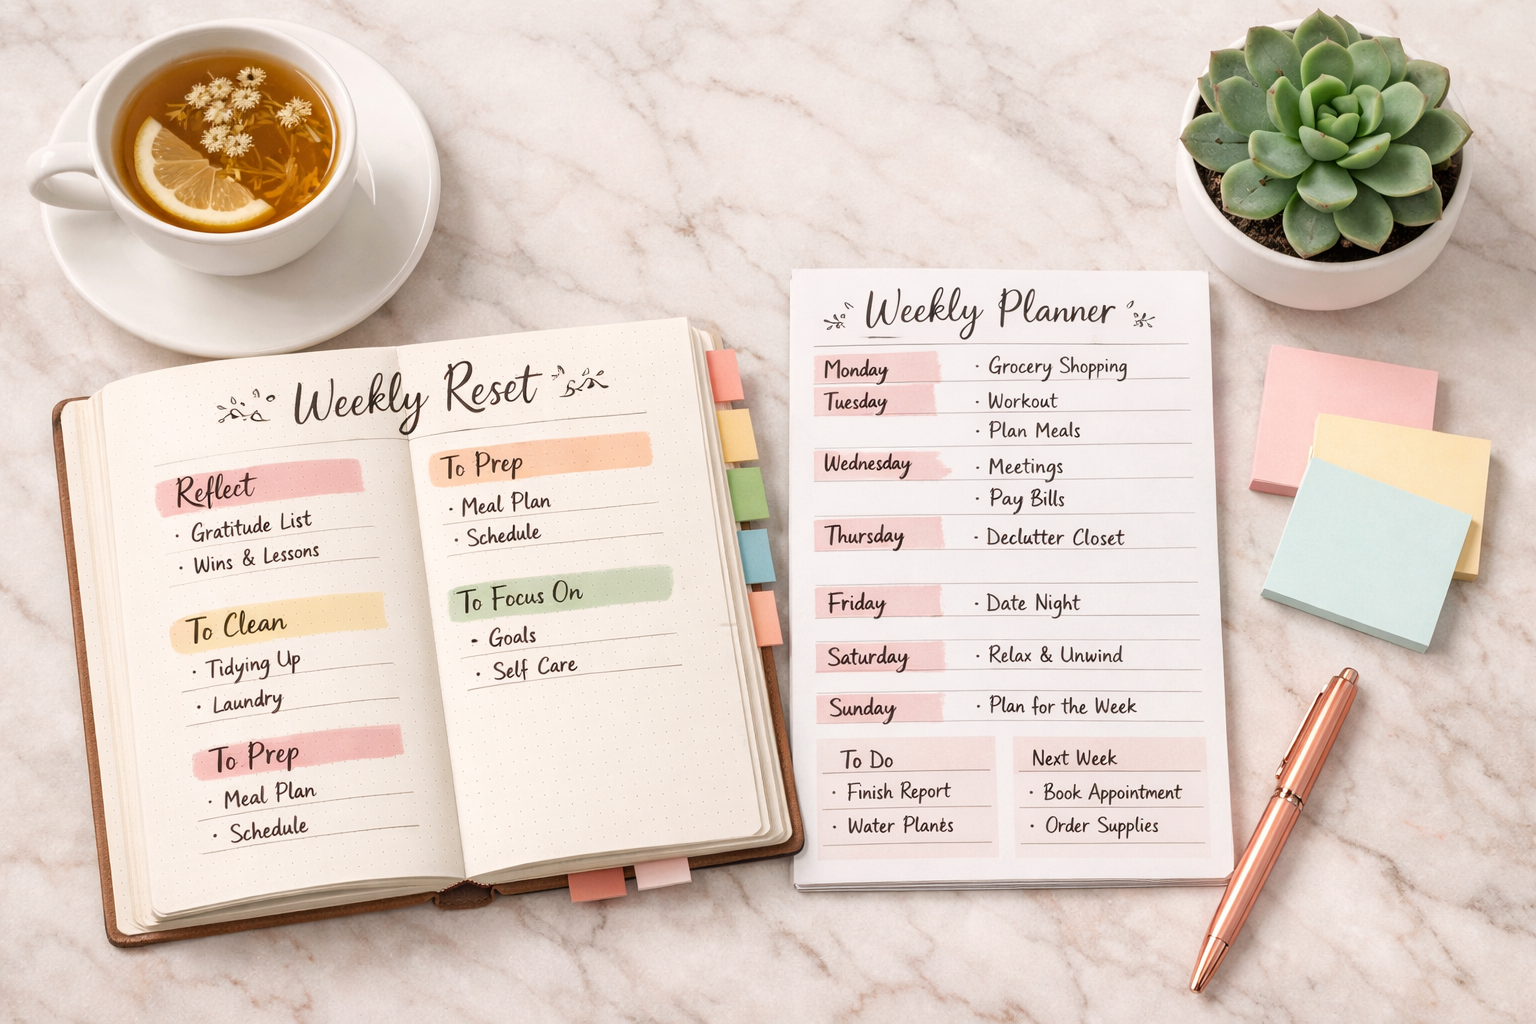 Weekly Reset
Reflect
· Gratitude List
· Wins & Lessons
To Clean
· Tidying Up
· Laundry
To Prep
· Meal Plan
· Schedule
To Prep
· Meal Plan
· Schedule
To Focus On
- Goals
· Self Care
Weekly Planner
Monday · Grocery Shopping
Tuesday · Workout
· Plan Meals
Wednesday · Meetings
· Pay Bills
Thursday · Declutter Closet
Friday · Date Night
Saturday · Relax & Unwind
Sunday · Plan for the Week
To Do
· Finish Report
· Water Plants
Next Week
· Book Appointment
· Order Supplies